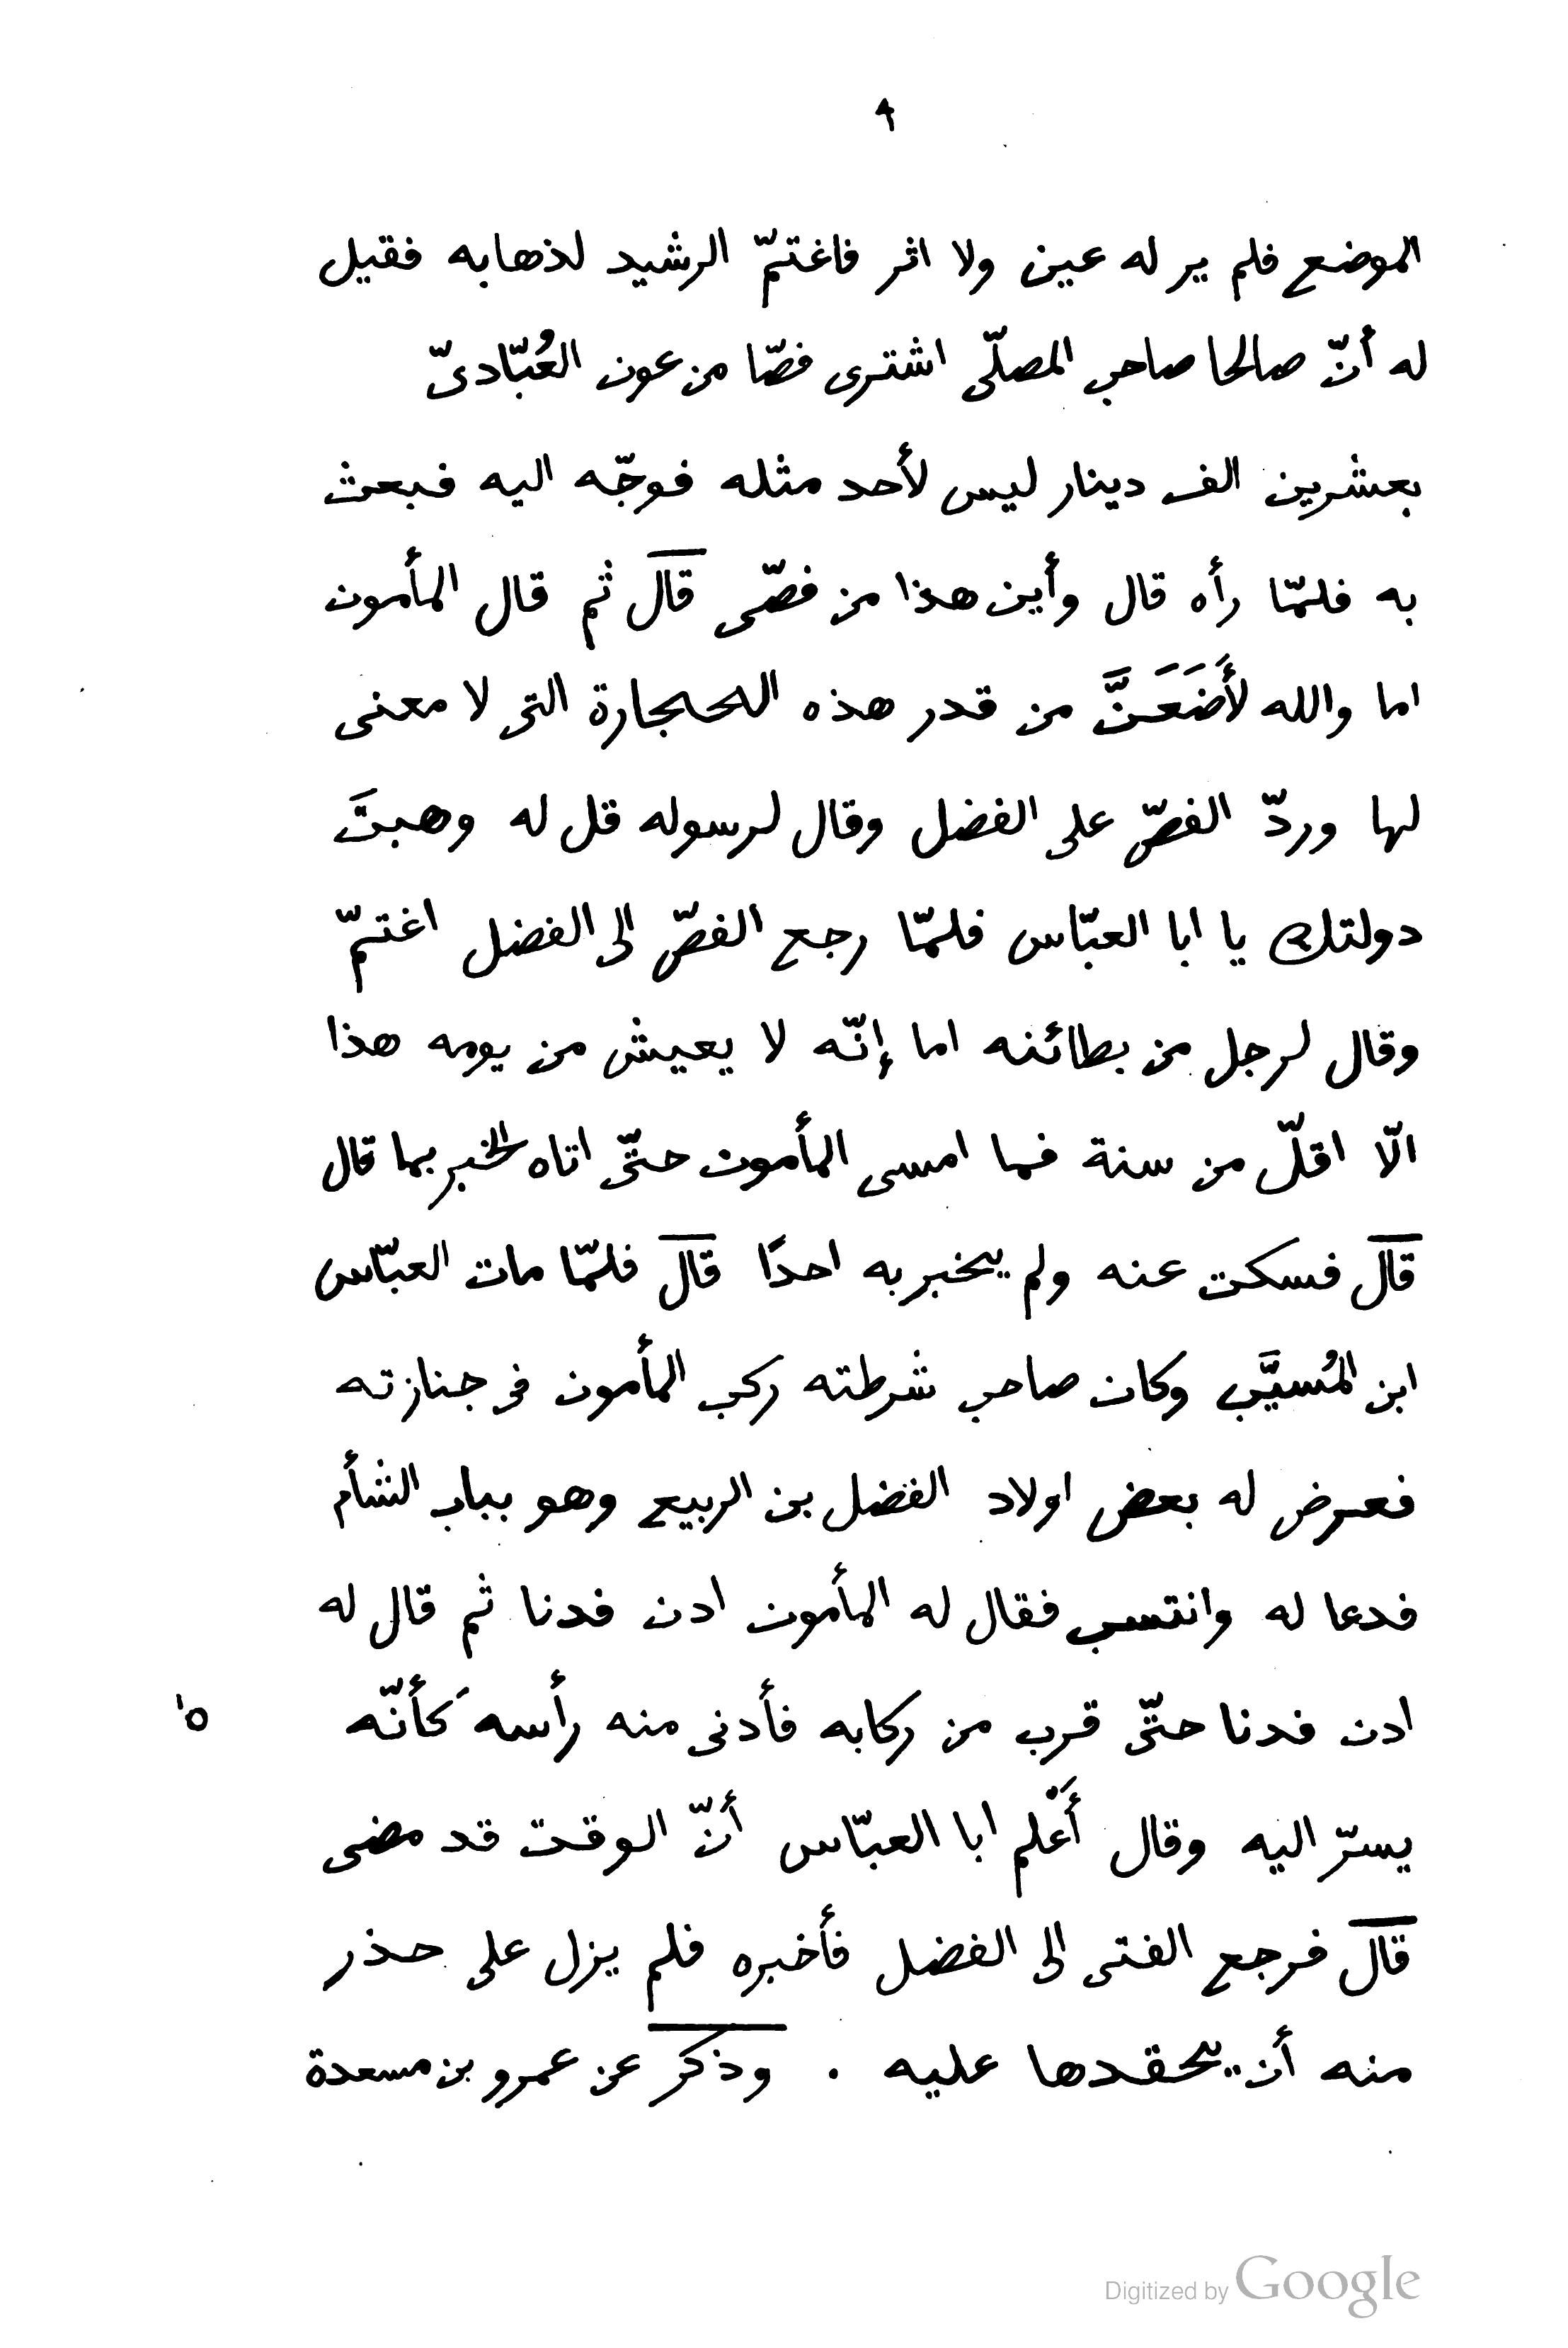 ٩
الموضع فلم ير له عين ولا اثر فاغتمّ الرشيد لذهابه فقيل
له أنّ صالحا صاحب المصلّى اشترى فصّا من عون العُبّادىّ
بعشرين الف دينار ليس لأحد مثله فوجّه اليه فبعث
به فلمّا رأه قال وأين هذا من فصّى قال ثم قال المأمون
اما والله لأَضَعَنَّ من قدر هذه الحجارة التى لا معنى
لها وردّ الفصّ على الفضل وقال لرسوله قل له وهبتَ
دولتك يا ابا العبّاس فلمّا رجع الفصّ الى الفضل اغتمّ
وقال لرجل من بطائنه اما إنّه لا يعيش من يومه هذا
الّا اقلّ من سنة فما امسى المأمون حتّى اتاه الخبر بما قال
قال فسكت عنه ولم يخبر به احدًا قال فلمّا مات العبّاس
ابن المُسيَّب وكان صاحب شرطته ركب المأمون فى جنازته
فعرض له بعض اولاد الفضل بن الربيع وهو بباب الشأم
فدعا له وانتسب فقال له المأمون ادن فدنا ثم قال له
ادن فدنا حتّى قرب من ركابه فأدنى منه رأسه كَأنّه
١٥
يسرّ اليه وقال أَعْلم ابا العبّاس أنّ الوقت قد مضى
قال فرجع الفتى الى الفضل فأخبره فلم يزل على حذر
منه أن يحقدها عليه . وذكر عن عمرو بن مسعدة
Digitized by Google